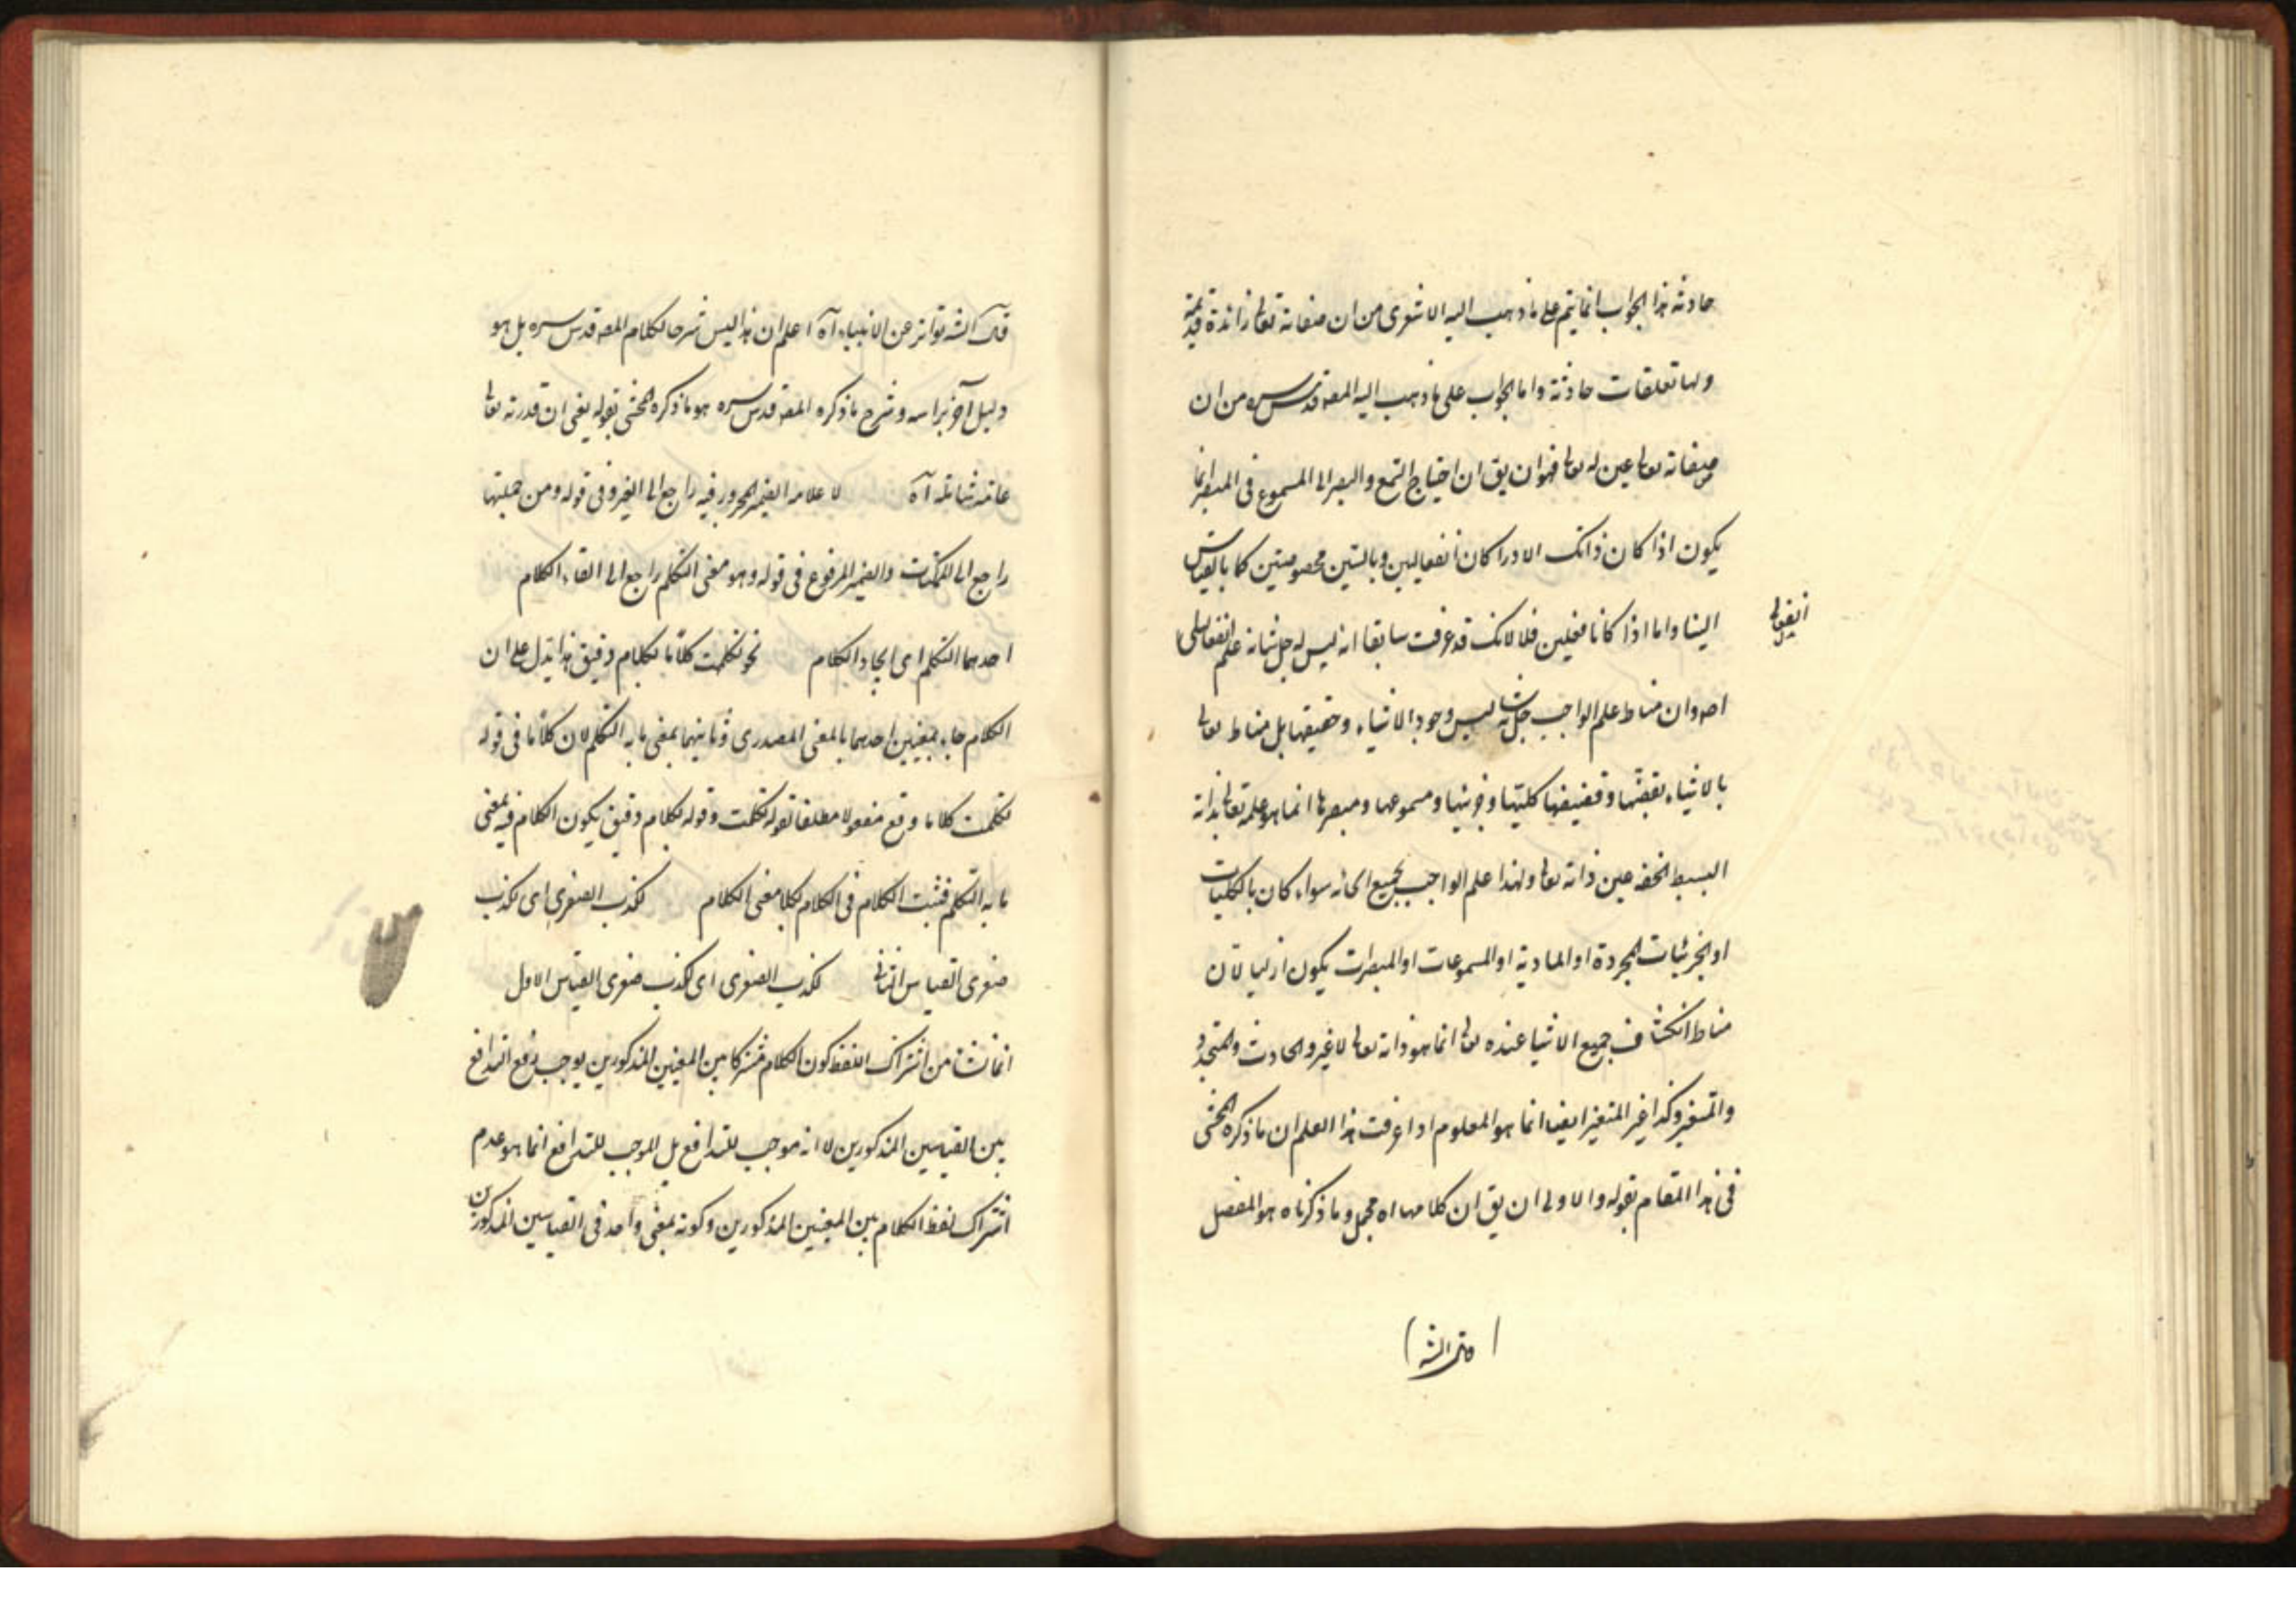 حادثة هذا الجواب انما يتم على ما ذهب اليه الاشعرى من ان صفاته تعالى زائدة قديمة
ولها تعلقات حادثة واما الجواب على ما ذهب اليه المصه قدس سره من ان
صفاته تعالى عين له تعالى فهو ان يق ان احتياج السمع والبصر الى المسموع فى المبصر انما
يكون اذا كان ذانك الادراكان انفعاليين وبالتين مخصوصتين كما بالقياس
الينا واما اذا كانا فعليين فلا لانك قد عرفت سابقا انه ليس له جل شانه علم انفعالى
انفعالى
اصه وان مناط علم الواجب جل شانه ليس وجود الاشياء وحقيقتها بل مناط تعالى
بالاشياء بقضها وقضيضها كليتها وجزئيها ومسموعها ومبصرها انما هو علمه تعالى بذاته
البسيط الحقه عين ذاته تعالى ولهذا علم الواجب بجميع انحائه سواء كان بالكليات
او الجزئيات المجردة او المادية او المسموعات او المبصرات يكون ازليا لان
مناط انكشاف جميع الاشيا عنده تعالى انما هو ذاته تعالى لا غير والحادث والمتجدد
والمتغير وكذا غير المتغير ايضا انما هو المعلوم اذا عرفت هذا اعلم ان ما ذكره المحشى
فى هذا المقام بقوله والاولى ان يق ان كلامهما اه مجمل وما ذكرناه هو المفصل
قال الشه
قال الشه تواتر عن الانبياء آه اعلم ان هذا ليس شرحا لكلام المصه قدس سره بل هو
دليل آخر براسه وشرح ما ذكره المصه قدس سره هو ما ذكره المحشى بقوله يعنى ان قدرته تعالى
عامة شاملة آه لا علامه الضمير المجرور فيه راجع الى الغير وفى قوله ومن جملتها
راجع الى الممكنات والضمير المرفوع فى قوله وهو معنى التكلم راجع الى القاء الكلام
احدهما التكلم اى ايجاد الكلام نحو تكلمت كلاما بكلام دقيق هذا يدل على ان
الكلام جاء بمعنيين احدهما بالمعنى المصدرى وثانيهما بمعنى ما به التكلم لان كلاما فى قوله
تكلمت كلاما وقع مفعولا مطلقا لقوله تكلمت وقوله بكلام دقيق يكون الكلام فيه بمعنى
ما به التكلم فثبت الكلام فى الكلام بكلا معنى الكلام لكذب الصغرى اى لكذب
صغرى القياس الثانى لكذب الصغرى اى لكذب صغرى القياس الاول
انما نشا من اشتراك اللفظ كون الكلام مشتركا بين المعنيين المذكورين يوجب رفع التدافع
بين القياسين المذكورين لا انه موجب للتدافع بل الموجب للتدافع انما هو عدم
اشتراك لفظ الكلام بين المعنيين المذكورين وكونه بمعنى واحد فى القياسين المذكورين